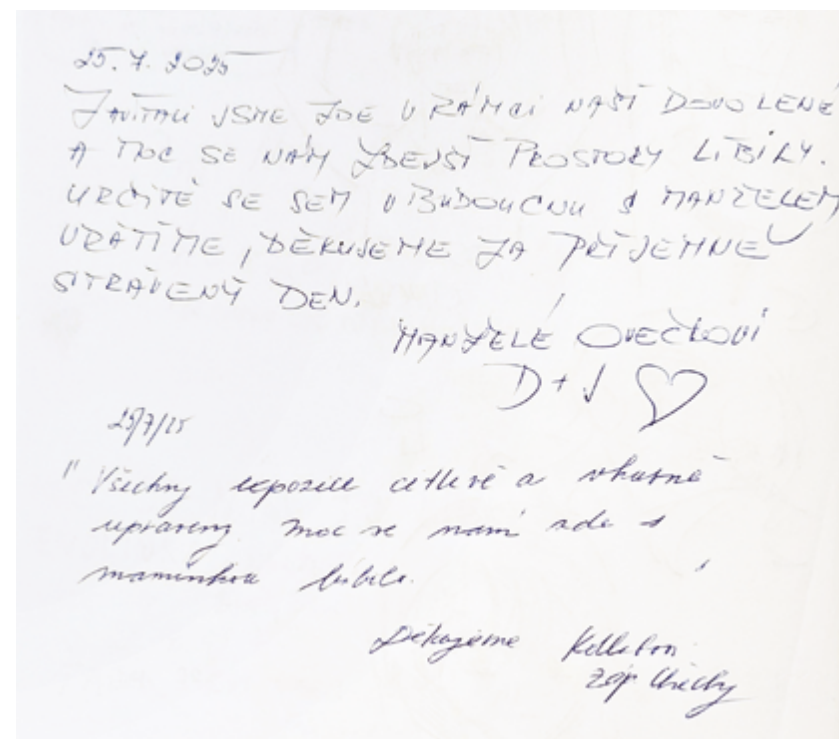 25. 7. 2025
ZAVÍTALI JSME ZDE V RÁMCI NAŠÍ DOVOLENÉ
A MOC SE NÁM ZDEJŠÍ PROSTORY LÍBILY.
URČITĚ SE SEM V BUDOUCNU S MANŽELEM
VRÁTÍME, DĚKUJEME ZA PŘÍJEMNĚ
STRÁVENÝ DEN.
MANŽELÉ OVEČKOVI
D + J
25/7/25
" Všechny expozice citlivě a vkusně
upraveny. Moc se nám zde s
maminkou líbilo.
Děkujeme